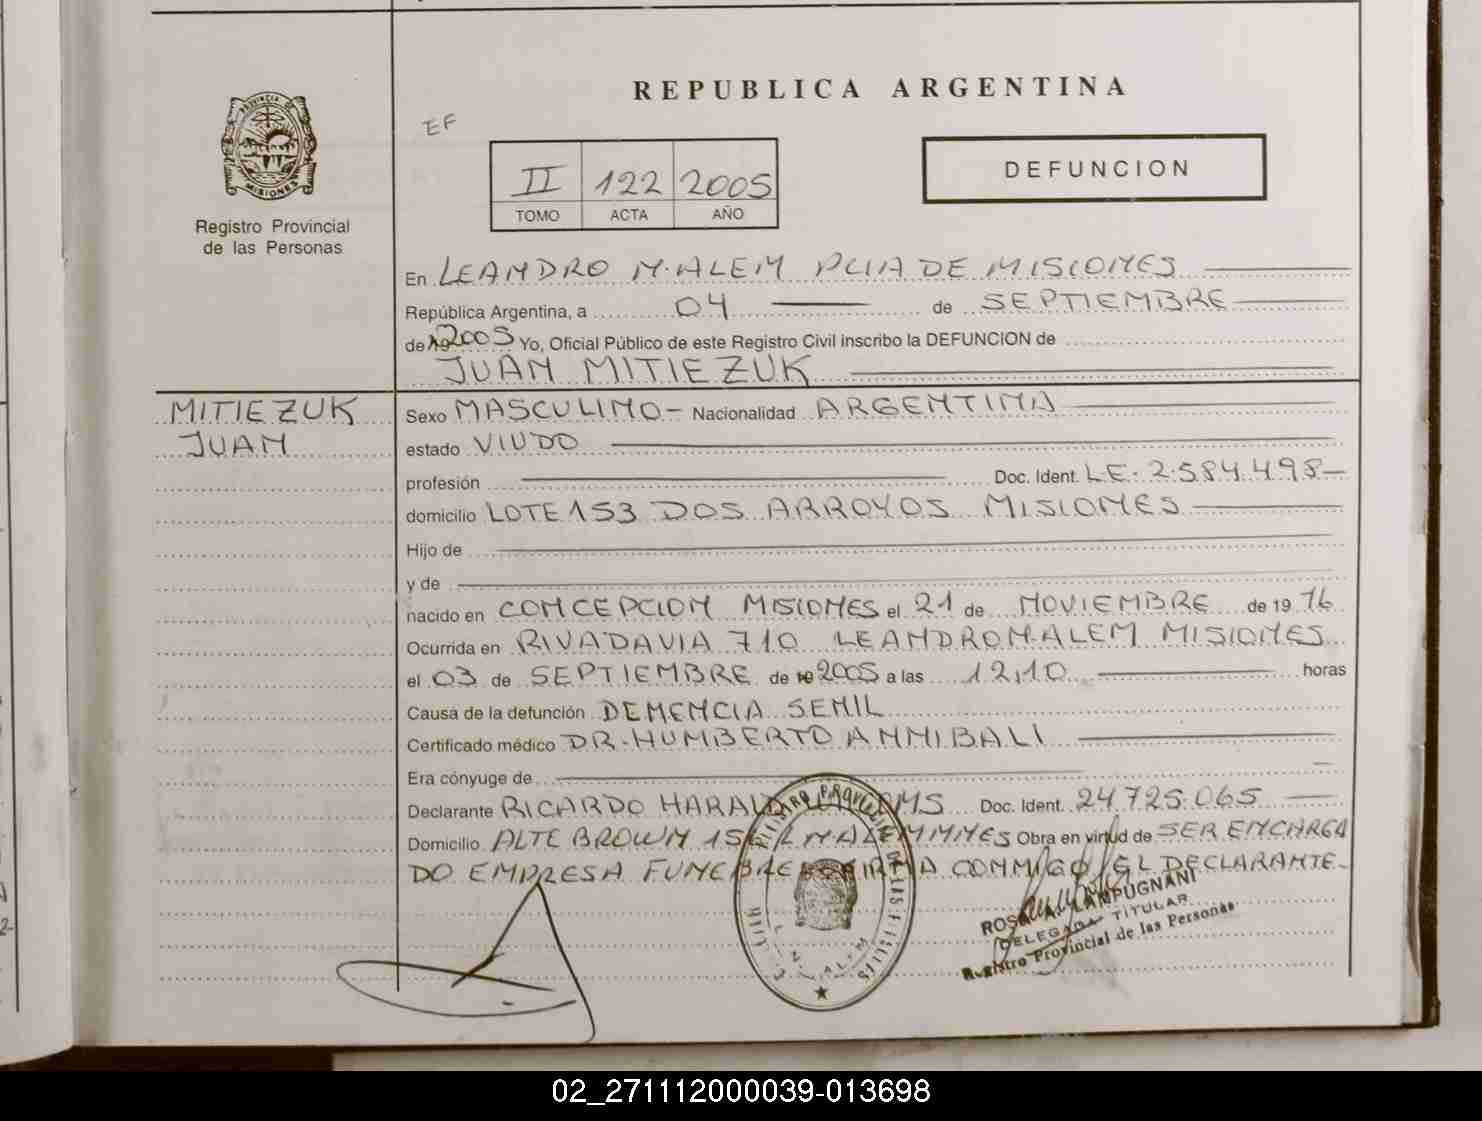 REPUBLICA ARGENTINA
EF
PROVINCIA DE
MISIONES
Registro Provincial
de las Personas
II 122 2005
TOMO ACTA AÑO
DEFUNCION
En LEANDRO N. ALEM PCIA DE MISIONES
República Argentina, a 04 de SEPTIEMBRE
de 2005 Yo, Oficial Público de este Registro Civil inscribo la DEFUNCION de
JUAN MITIEZUK
MITIEZUK
JUAN
Sexo MASCULINO - Nacionalidad ARGENTINA
estado VIUDO
profesión Doc. Ident. L.E. 2.584.498
domicilio LOTE 153 DOS ARROYOS MISIONES
Hijo de
y de
nacido en CONCEPCION MISIONES el 21 de NOVIEMBRE de 19 16
Ocurrida en RIVADAVIA 710 LEANDRO N. ALEM MISIONES
el 03 de SEPTIEMBRE de 2005 a las 12,10 horas
Causa de la defunción DEMENCIA SENIL
Certificado médico DR. HUMBERTO ANNIBALI
Era cónyuge de
Declarante RICARDO Doc. Ident. 24.725.065
Domicilio ALTE BROWN Obra en virtud de SER ENCARGA
DO EMPRESA FUNEBRE CONMIGO EL DECLARANTE
LAMPUGNANI
DELEGADA TITULAR
Registro Provincial de las Personas
02_271112000039-013698